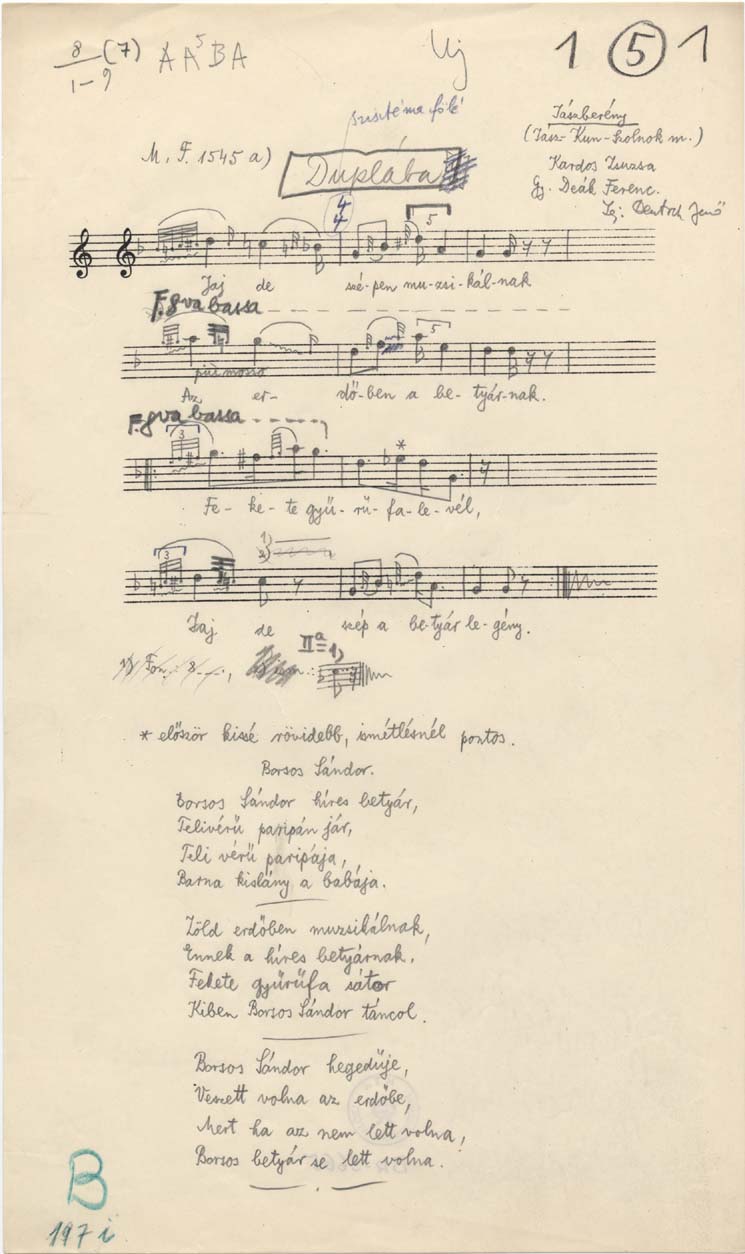 8/1-9 (7) A A⁵ B A
Uj
1 5 1
szisztéma fölé
Jászberény
(Jász-Kun-Szolnok m.)
M. F. 1545 a)
Duplába
Kardos Zsuzsa
Gj. Deák Ferenc.
Lej: Deutsch Jenő
4/4
5
Jaj de szé-pen mu-zsi-kál-nak
F. 8va bassa
5
più mosso
Az er- dő-ben a be-tyár-nak.
F. 8va bassa
3
*
Fe- ke- te gyü- rü- fa-le-vél,
1)
2)
3
Jaj de szép a be-tyár le-gény.
IIª = 1)
* először kissé rövidebb, ismétlésnél pontos.
Borsos Sándor.
Borsos Sándor híres betyár,
Telivérű paripán jár,
Teli vérű paripája,
Barna kislány a babája.
Zöld erdőben muzsikálnak,
Ennek a híres betyárnak.
Fekete gyürüfa sátor
Kiben Borsos Sándor táncol.
Borsos Sándor hegedüje,
Veszett volna az erdőbe,
Mert ha az nem lett volna,
Borsos betyár se lett volna.
B
197 i